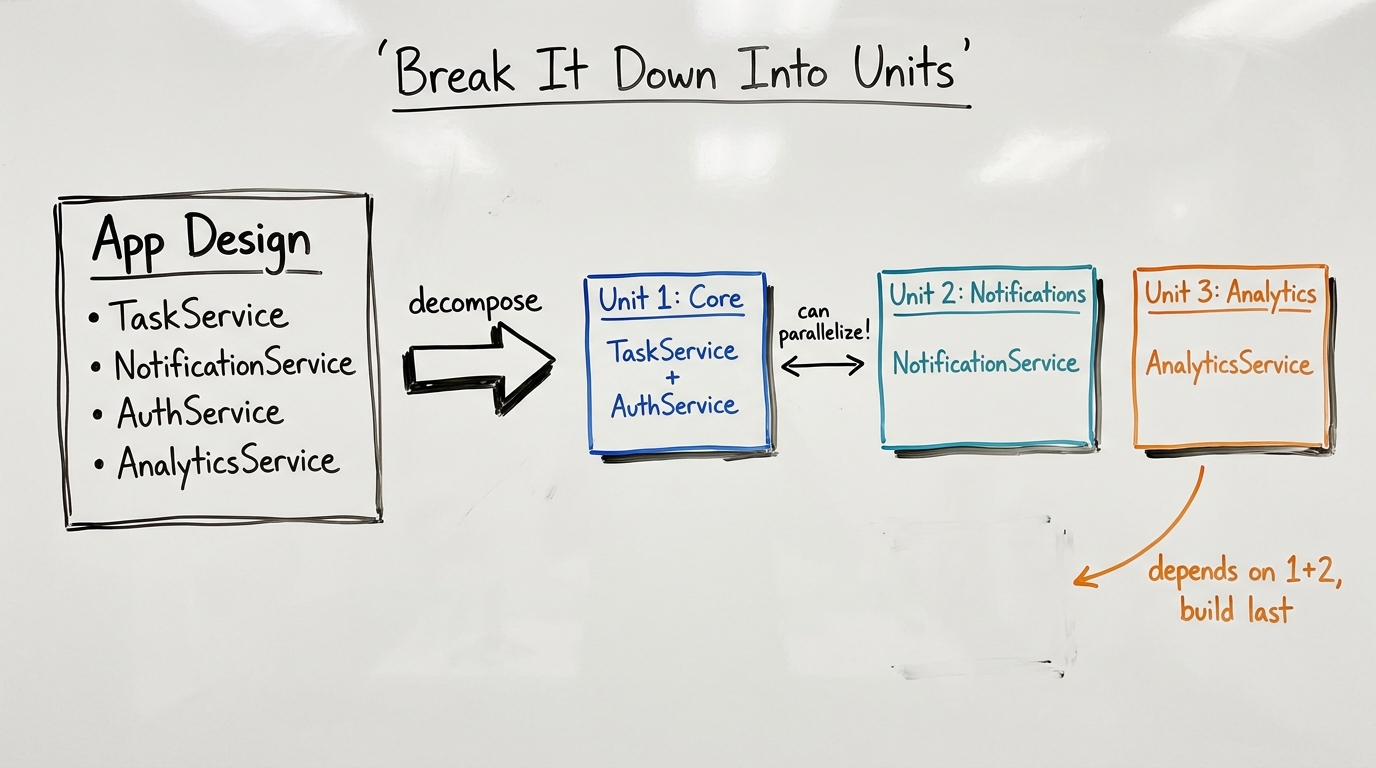 'Break It Down Into Units'
App Design
• TaskService
• NotificationService
• AuthService
• AnalyticsService
decompose
Unit 1: Core
TaskService
+
AuthService
can
parallelize!
Unit 2: Notifications
NotificationService
Unit 3: Analytics
AnalyticsService
depends on 1+2,
build last